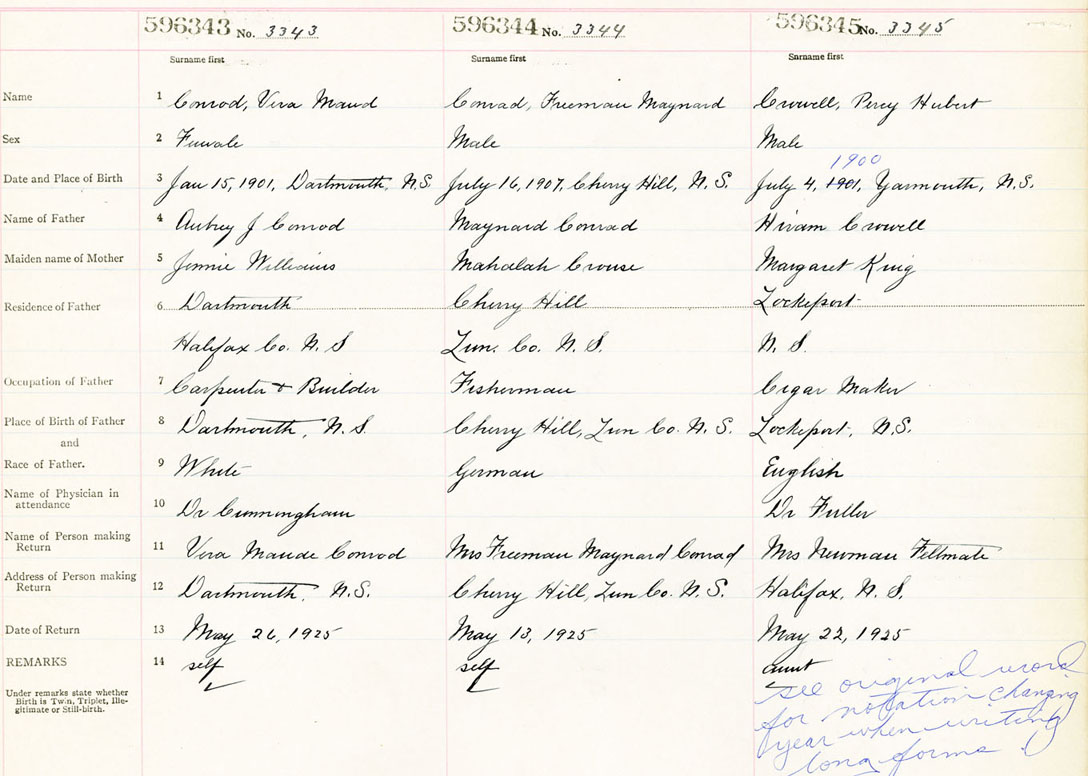 596343 No. 3343 596344 No. 3344 596345 No. 3345
Surname first Surname first Surname first
Name 1 Conrod, Vera Maud Conrad, Freeman Maynard Crowell, Percy Hubert
Sex 2 Female Male Male
1900
Date and Place of Birth 3 Jan 15, 1901, Dartmouth, N.S. July 16, 1907, Cherry Hill, N.S. July 4, 1901, Yarmouth, N.S.
Name of Father 4 Aubrey J Conrod Maynard Conrad Hiram Crowell
Maiden name of Mother 5 Jennie Williams Mahalah Crouse Margaret King
Residence of Father 6 Dartmouth Cherry Hill Lockeport
Halifax Co. N.S Lun. Co. N.S. N.S.
Occupation of Father 7 Carpenter & Builder Fisherman Cigar Maker
Place of Birth of Father 8 Dartmouth, N.S. Cherry Hill, Lun Co. N.S. Lockeport, N.S.
and
Race of Father. 9 White German English
Name of Physician in
attendance 10 Dr Cunningham Dr Fuller
Name of Person making
Return 11 Vera Maude Conrod Mrs Freeman Maynard Conrad Mrs Newman Feltmate
Address of Person making
Return 12 Dartmouth, N.S. Cherry Hill, Lun Co. N.S. Halifax, N.S.
Date of Return 13 May 26, 1925 May 13, 1925 May 22, 1925
REMARKS 14 self self aunt
Under remarks state whether
Birth is Twin, Triplet, Ille-
gitimate or Still-birth.
see original record
for notation changing
year when writing
long forms